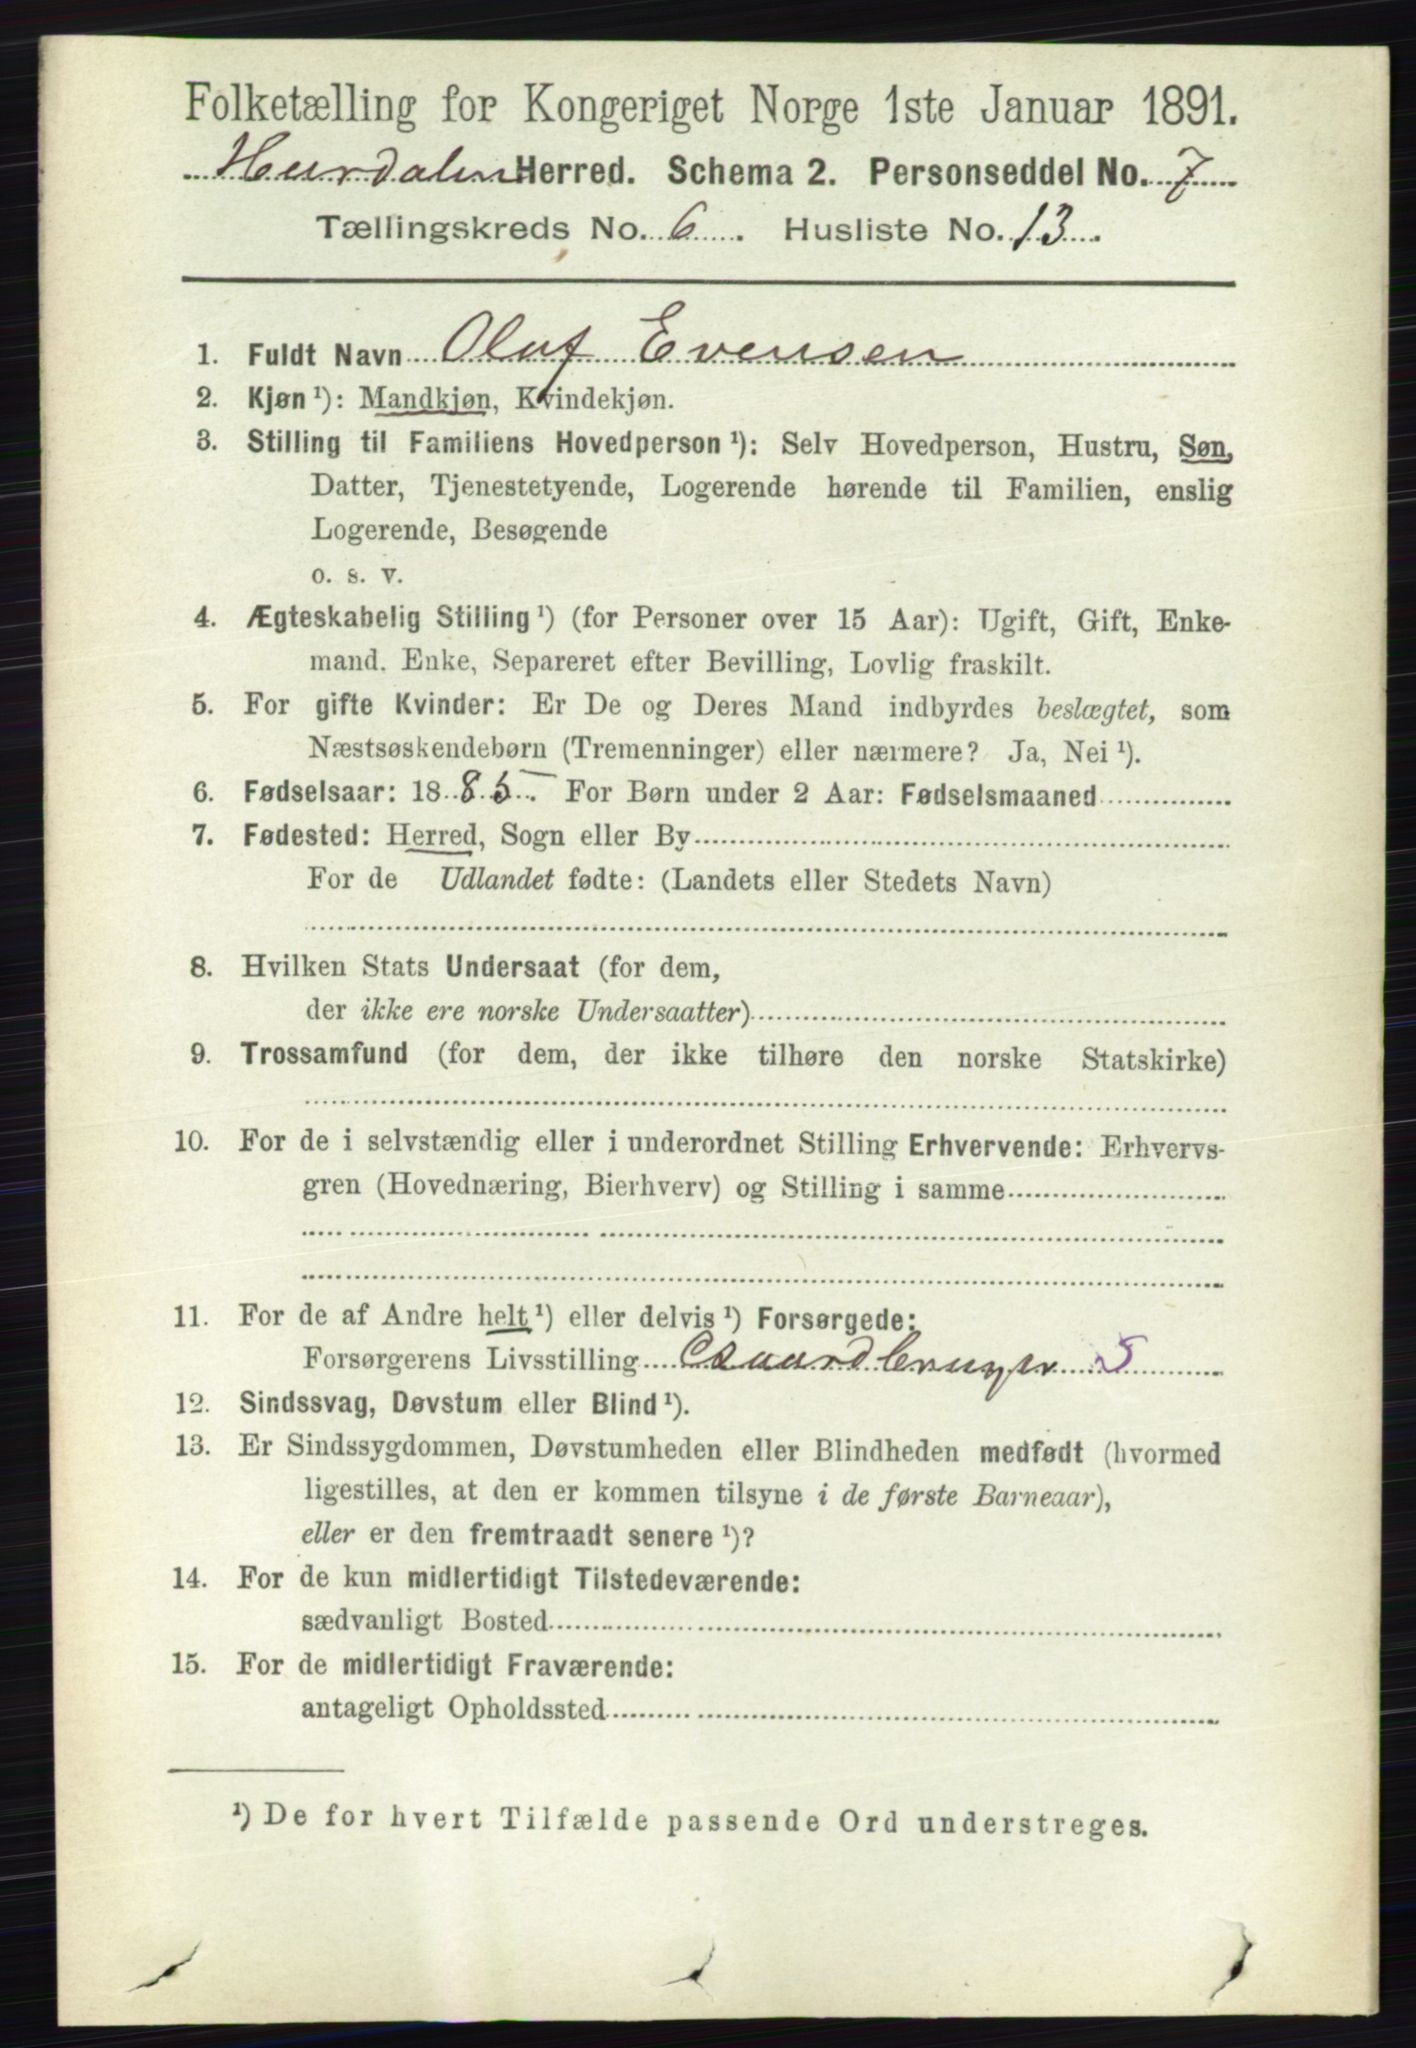 Folketælling for Kongeriget Norge 1ste Januar 1891.
Hurdalen Herred. Schema 2. Personseddel No. 7
Tællingskreds No. 6. Husliste No. 13.
1. Fuldt Navn Oluf Evensen
2. Kjøn ¹): Mandkjøn, Kvindekjøn.
3. Stilling til Familiens Hovedperson ¹): Selv Hovedperson, Hustru, Søn,
Datter, Tjenestetyende, Logerende hørende til Familien, enslig
Logerende, Besøgende
o. s. v.
4. Ægteskabelig Stilling ¹) (for Personer over 15 Aar): Ugift, Gift, Enke-
mand, Enke, Separeret efter Bevilling, Lovlig fraskilt.
5. For gifte Kvinder: Er De og Deres Mand indbyrdes beslægtet, som
Næstsøskendebørn (Tremenninger) eller nærmere? Ja, Nei ¹).
6. Fødselsaar: 1885. For Børn under 2 Aar: Fødselsmaaned
7. Fødested: Herred, Sogn eller By
For de Udlandet fødte: (Landets eller Stedets Navn)
8. Hvilken Stats Undersaat (for dem,
der ikke ere norske Undersaatter)
9. Trossamfund (for dem, der ikke tilhøre den norske Statskirke)
10. For de i selvstændig eller i underordnet Stilling Erhvervende: Erhvervs-
gren (Hovednæring, Bierhverv) og Stilling i samme
11. For de af Andre helt ¹) eller delvis ¹) Forsørgede:
Forsørgerens Livsstilling Gaardbruger S
12. Sindssvag, Døvstum eller Blind ¹).
13. Er Sindssygdommen, Døvstumheden eller Blindheden medfødt (hvormed
ligestilles, at den er kommen tilsyne i de første Barneaar),
eller er den fremtraadt senere ¹)?
14. For de kun midlertidigt Tilstedeværende:
sædvanligt Bosted
15. For de midlertidigt Fraværende:
antageligt Opholdssted
¹) De for hvert Tilfælde passende Ord understreges.